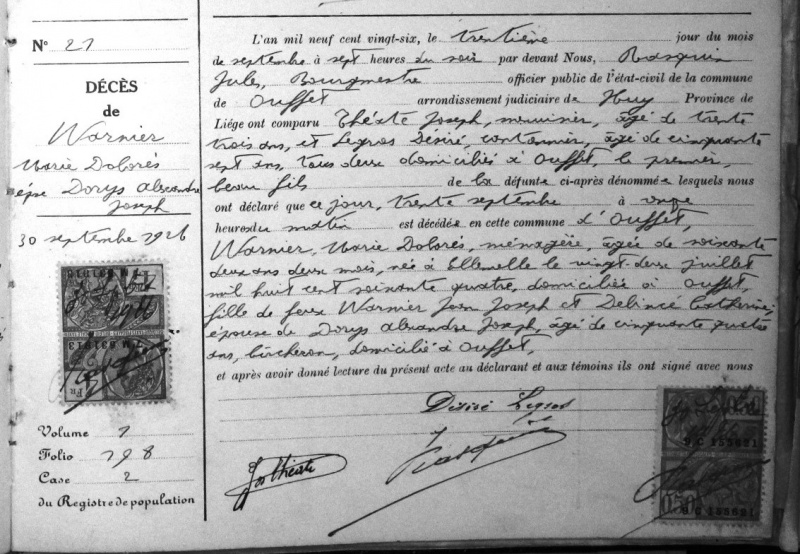 N° 21
DÉCÈS
de
Warnier
Marie Dolorés
épse Dorys Alexandre
Joseph
30 septembre 1926
Volume 1
Folio 198
Case 2
du Registre de population
L'an mil neuf cent vingt-six, le trentième jour du mois
de septembre à sept heures du soir par devant Nous, Rasquin
Jules, Bourgmestre officier public de l'état-civil de la commune
de Ouffet arrondissement judiciaire de Huy Province de
Liége ont comparu Théate Joseph, menuisier, âgé de trente
trois ans, et Legros Désiré, cantonnier, âgé de cinquante
sept ans, tous deux domiciliés à Ouffet, le premier,
beau fils de la défunte ci-après dénommée lesquels nous
ont déclaré que ce jour, trente septembre à onze
heures du matin est décédée en cette commune d'Ouffet,
Warnier, Marie Dolorés, ménagère, âgée de soixante
deux ans deux mois, née à Ellemelle le vingt-deux juillet
mil huit cent soixante quatre, domiciliée à Ouffet,
fille de feus Warnier Jean Joseph et Delincé Catherine;
épouse de Dorys Alexandre Joseph, âgé de cinquante quatre
ans, bûcheron, domicilié à Ouffet,
et après avoir donné lecture du présent acte au déclarant et aux témoins ils ont signé avec nous
Désiré Legros
Jos Théate
J Rasquin
9 C 155691
0,50
9 C 155691